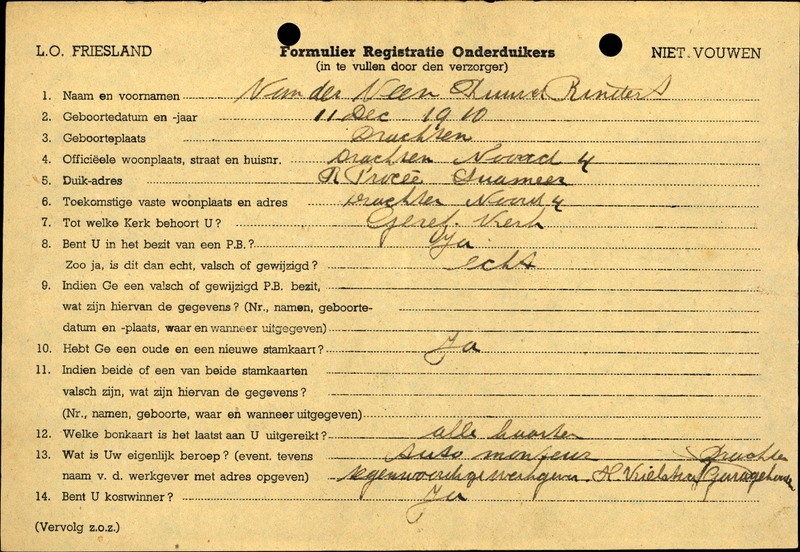 L.O. FRIESLAND
Formulier Registratie Onderduikers
NIET VOUWEN
(in te vullen door den verzorger)
1. Naam en voornamen Van der Veen
2. Geboortedatum en -jaar 11 Dec 1910
3. Geboorteplaats Drachten
4. Officiëele woonplaats, straat en huisnr. Drachten Noord 4
5. Duik-adres R Procée Suameer
6. Toekomstige vaste woonplaats en adres Drachten Noord 4
7. Tot welke Kerk behoort U? Geref. Kerk
8. Bent U in het bezit van een P.B.? Ja
Zoo ja, is dit dan echt, valsch of gewijzigd? echt
9. Indien Ge een valsch of gewijzigd P.B. bezit,
wat zijn hiervan de gegevens? (Nr., namen, geboorte-
datum en -plaats, waar en wanneer uitgegeven)
10. Hebt Ge een oude en een nieuwe stamkaart? Ja
11. Indien beide of een van beide stamkaarten
valsch zijn, wat zijn hiervan de gegevens?
(Nr., namen, geboorte, waar en wanneer uitgegeven)
12. Welke bonkaart is het laatst aan U uitgereikt? alle kaarten
13. Wat is Uw eigenlijk beroep? (event. tevens Auto monteur Drachten
naam v. d. werkgever met adres opgeven) tegenwoordige werkgever H Vrielstra Garagehouder
14. Bent U kostwinner? Ja
(Vervolg z.o.z.)